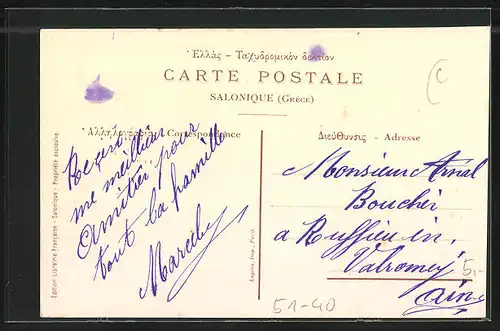 Ἑλλὰς – Ταχυδρομικὸν δελτίον
CARTE POSTALE
SALONIQUE (GRÈCE)
Ἀλληλογραφία - Correspondence
Διεύθυνσις - Adresse
Reçois
me meilleur
amitier pour
tout la famille
Marcel
Monsieur Arnal
Boucher
a Ruffieu en
Valromey
Ain
Edition Librairie Française - Salonique - Propriété exclusive
Lagora, Imp., Paris
C
51-40
5,-